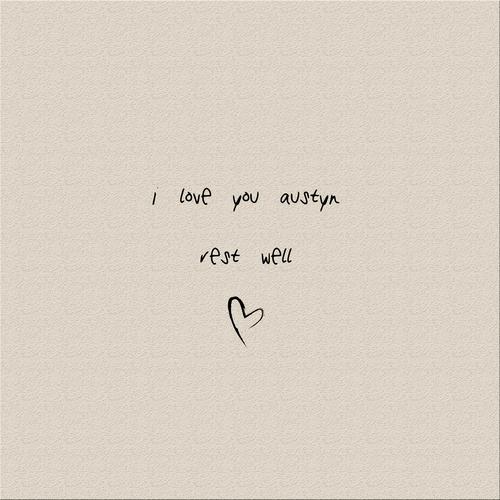 i love you austyn
rest well